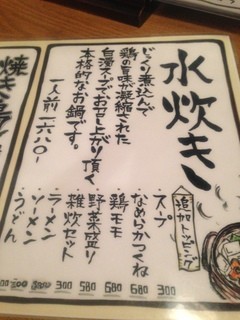 水炊き
じっくり煮込んで
鶏の旨味が凝縮された
白湯スープでお召し上がり頂く
本格的なお鍋です。
一人前 一六八〇-
追加トッピング
・スープ 300
・なめらかつくね 680
・鶏モモ 680
・野菜盛り 580
・雑炊セット 580
・ラーメン 300
・ソーメン
・うどん 300
焼き